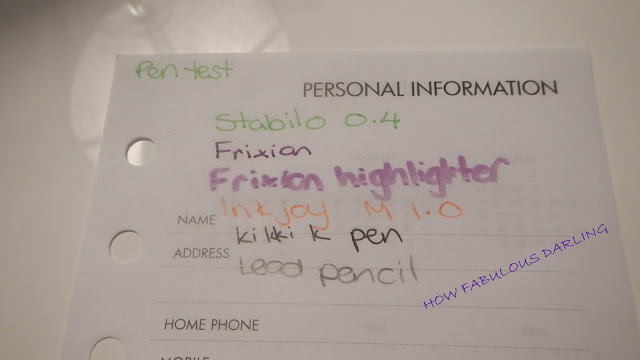 Pen test
PERSONAL INFORMATION
Stabilo 0.4
Frixion
Frixion highlighter
inkjoy M 1.0
NAME
kikki k pen
ADDRESS
Lead pencil
HOW FABULOUS DARLING
HOME PHONE
MOBILE